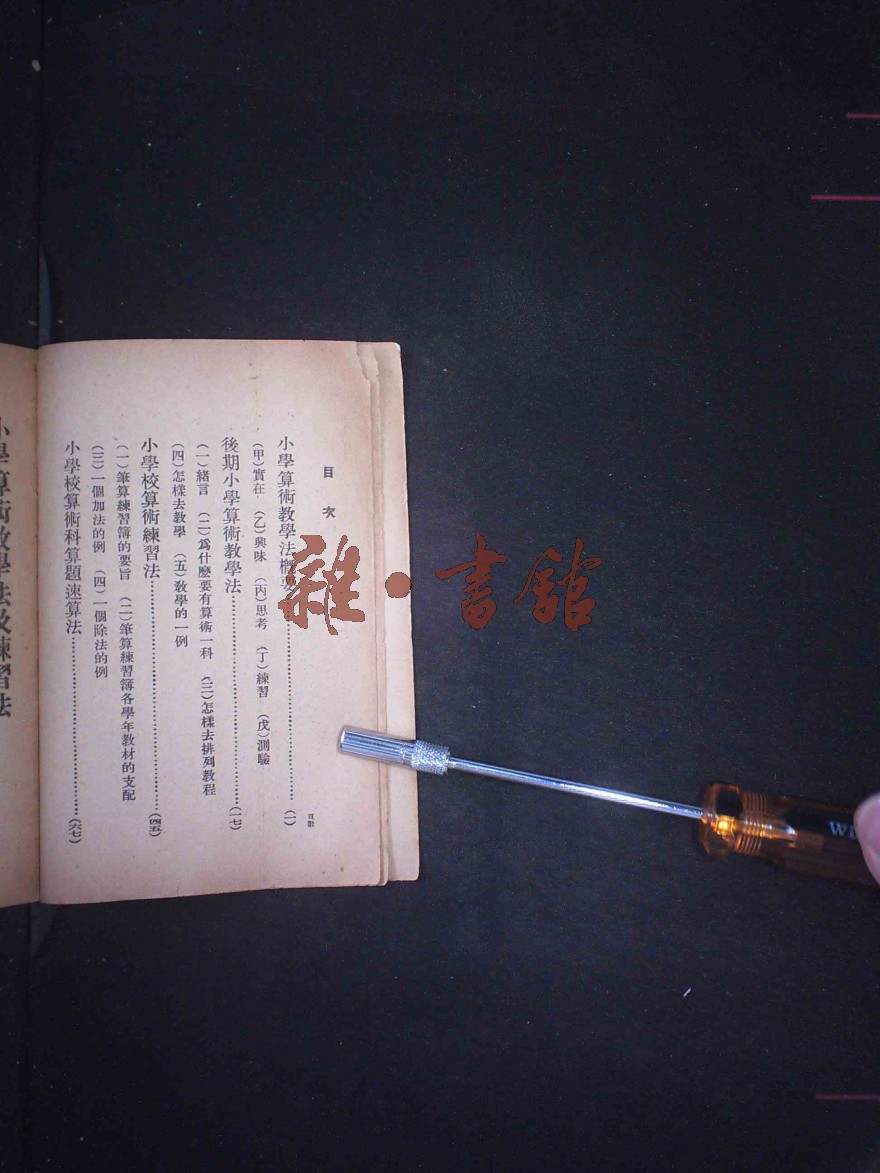 目次
頁數
小學算術教學法概要……(一)
(甲)實在 (乙)興味 (丙)思考 (丁)練習 (戊)測驗
後期小學算術教學法……(一七)
(一)緒言 (二)爲什麼要有算術一科 (三)怎樣去排列教程
(四)怎樣去教學 (五)教學的一例
小學校算術練習法……(四五)
(一)筆算練習簿的要旨 (二)筆算練習簿各學年教材的支配
(三)一個加法的例 (四)一個除法的例
小學校算術科算題速算法……(六七)
小學算術教學法及練習法
雜·書館